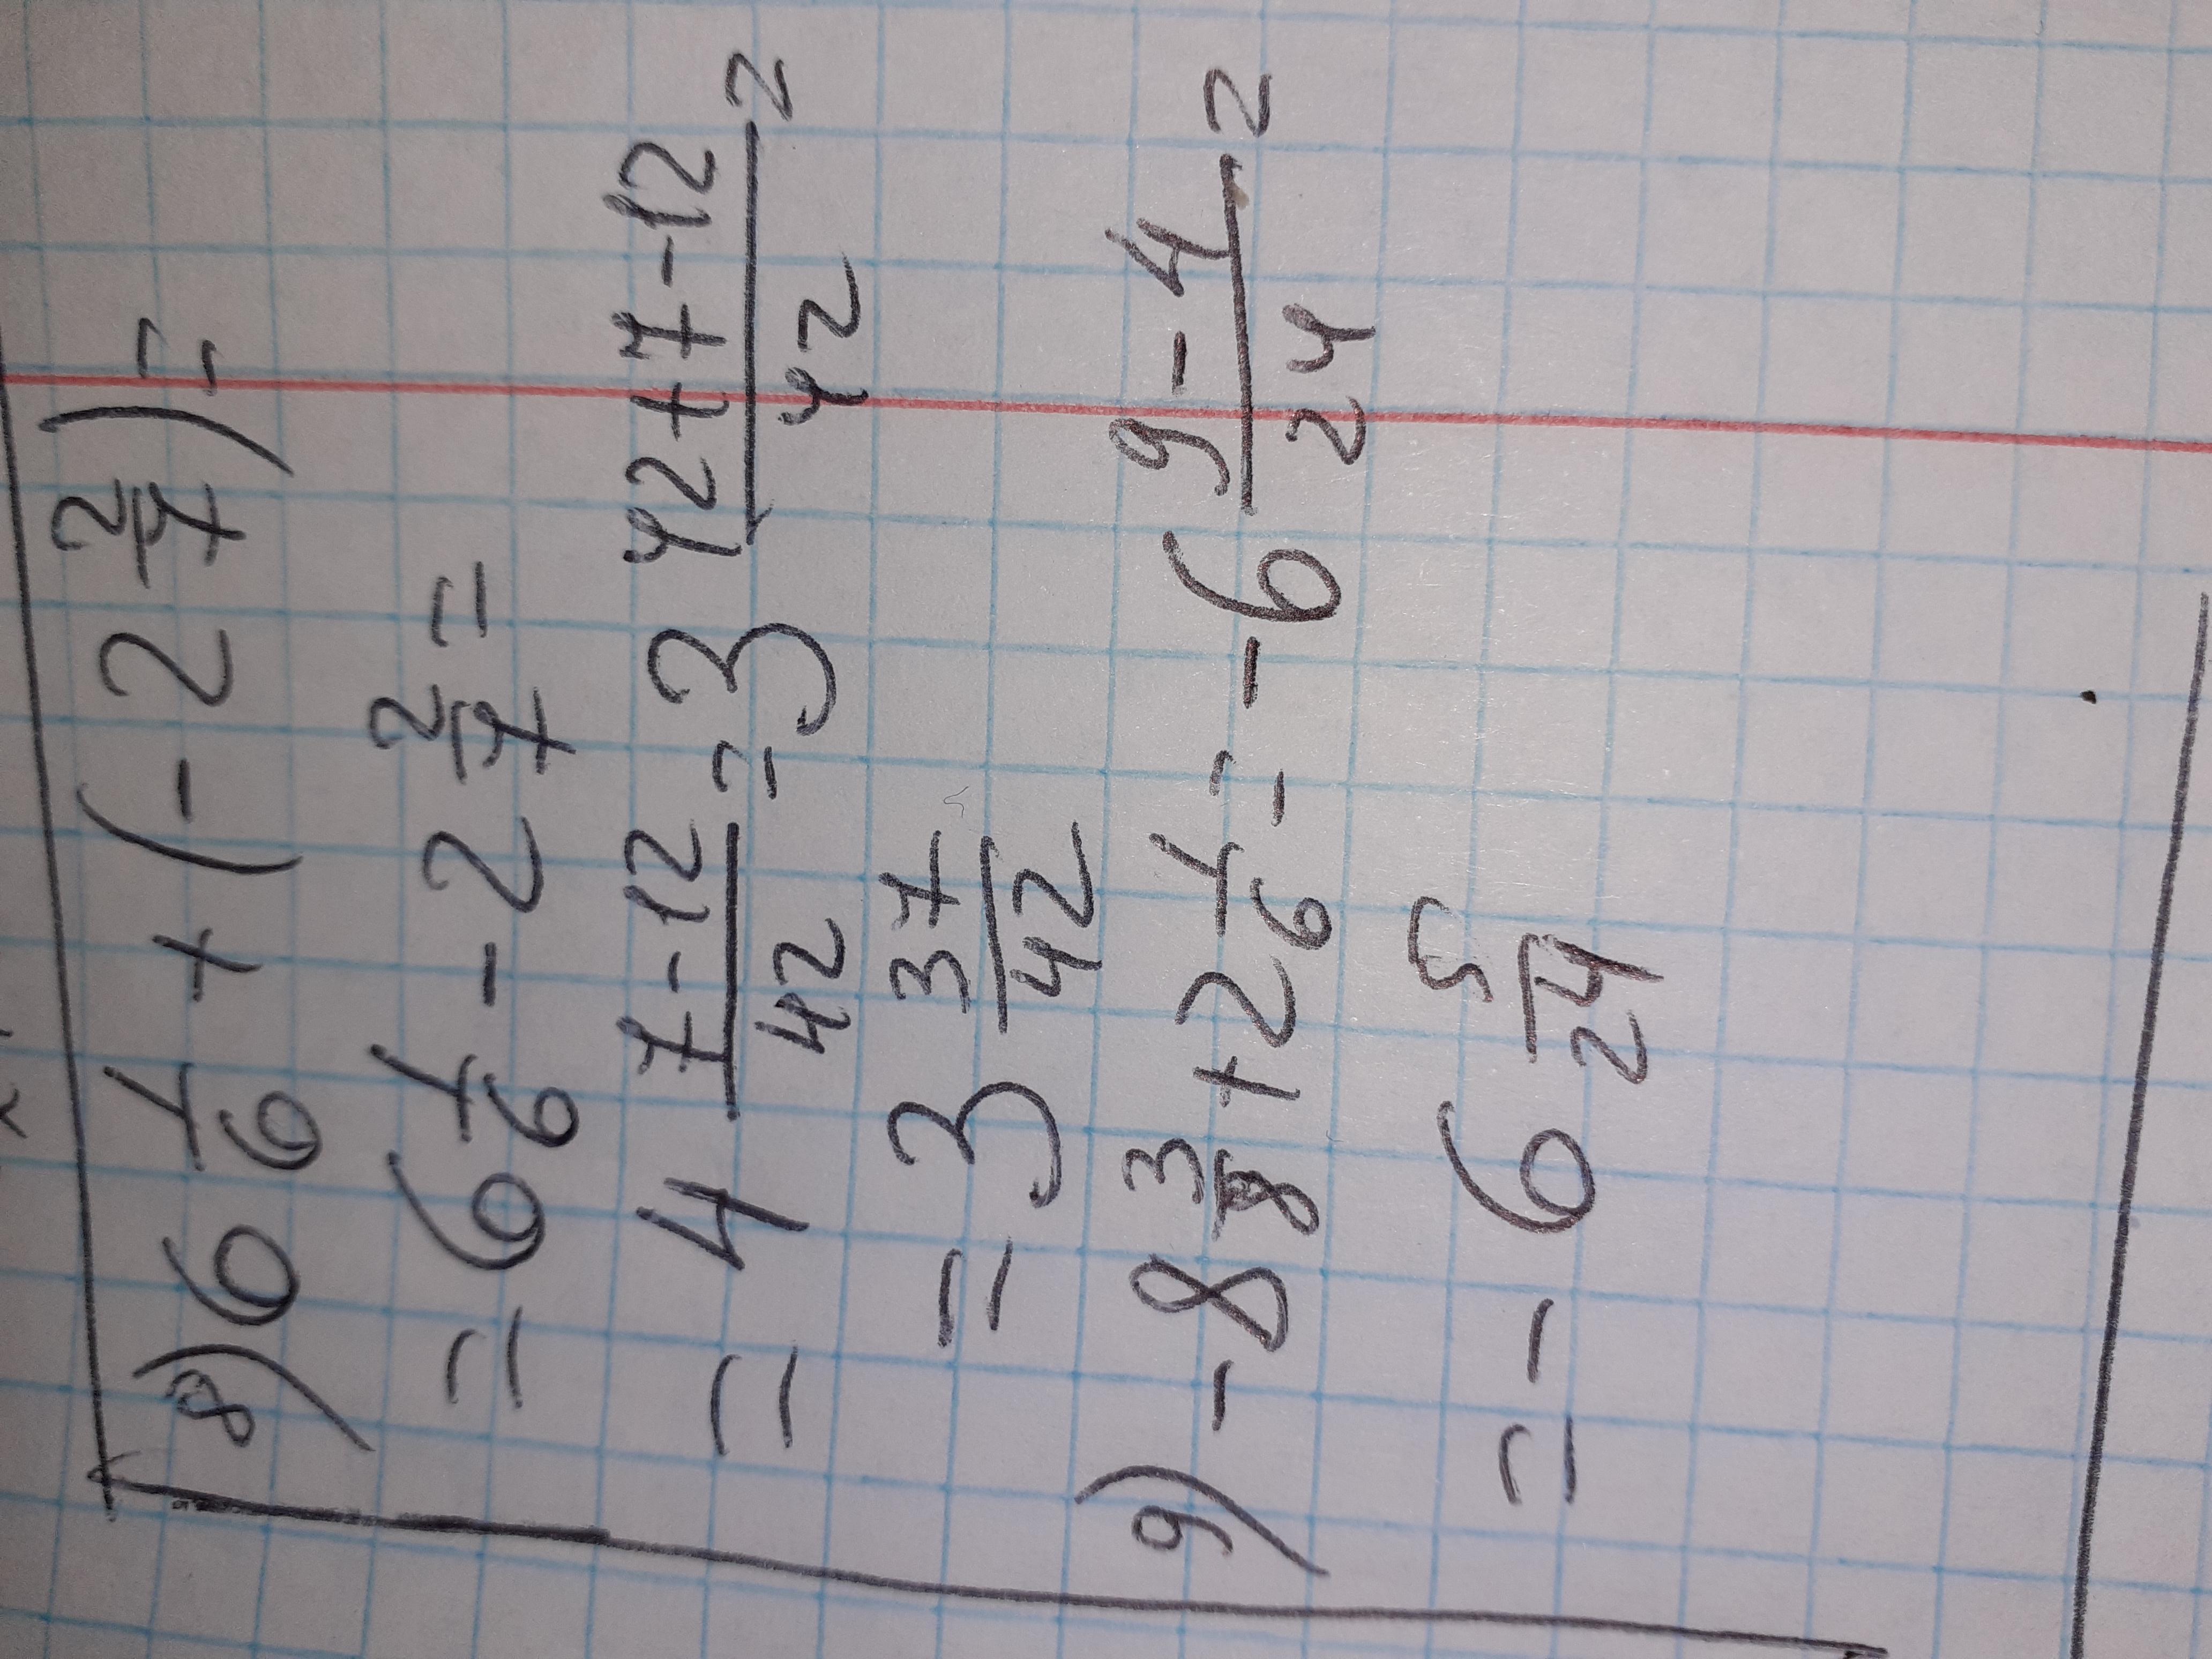 8) 6 1/6 + (- 2 2/7) =
= 6 1/6 - 2 2/7 =
= 4 7-12/42 = 3 42+7-12/42 =
= 3 37/42
9) - 8 3/8 + 2 1/6 = - 6 9-4/24 =
= - 6 5/24